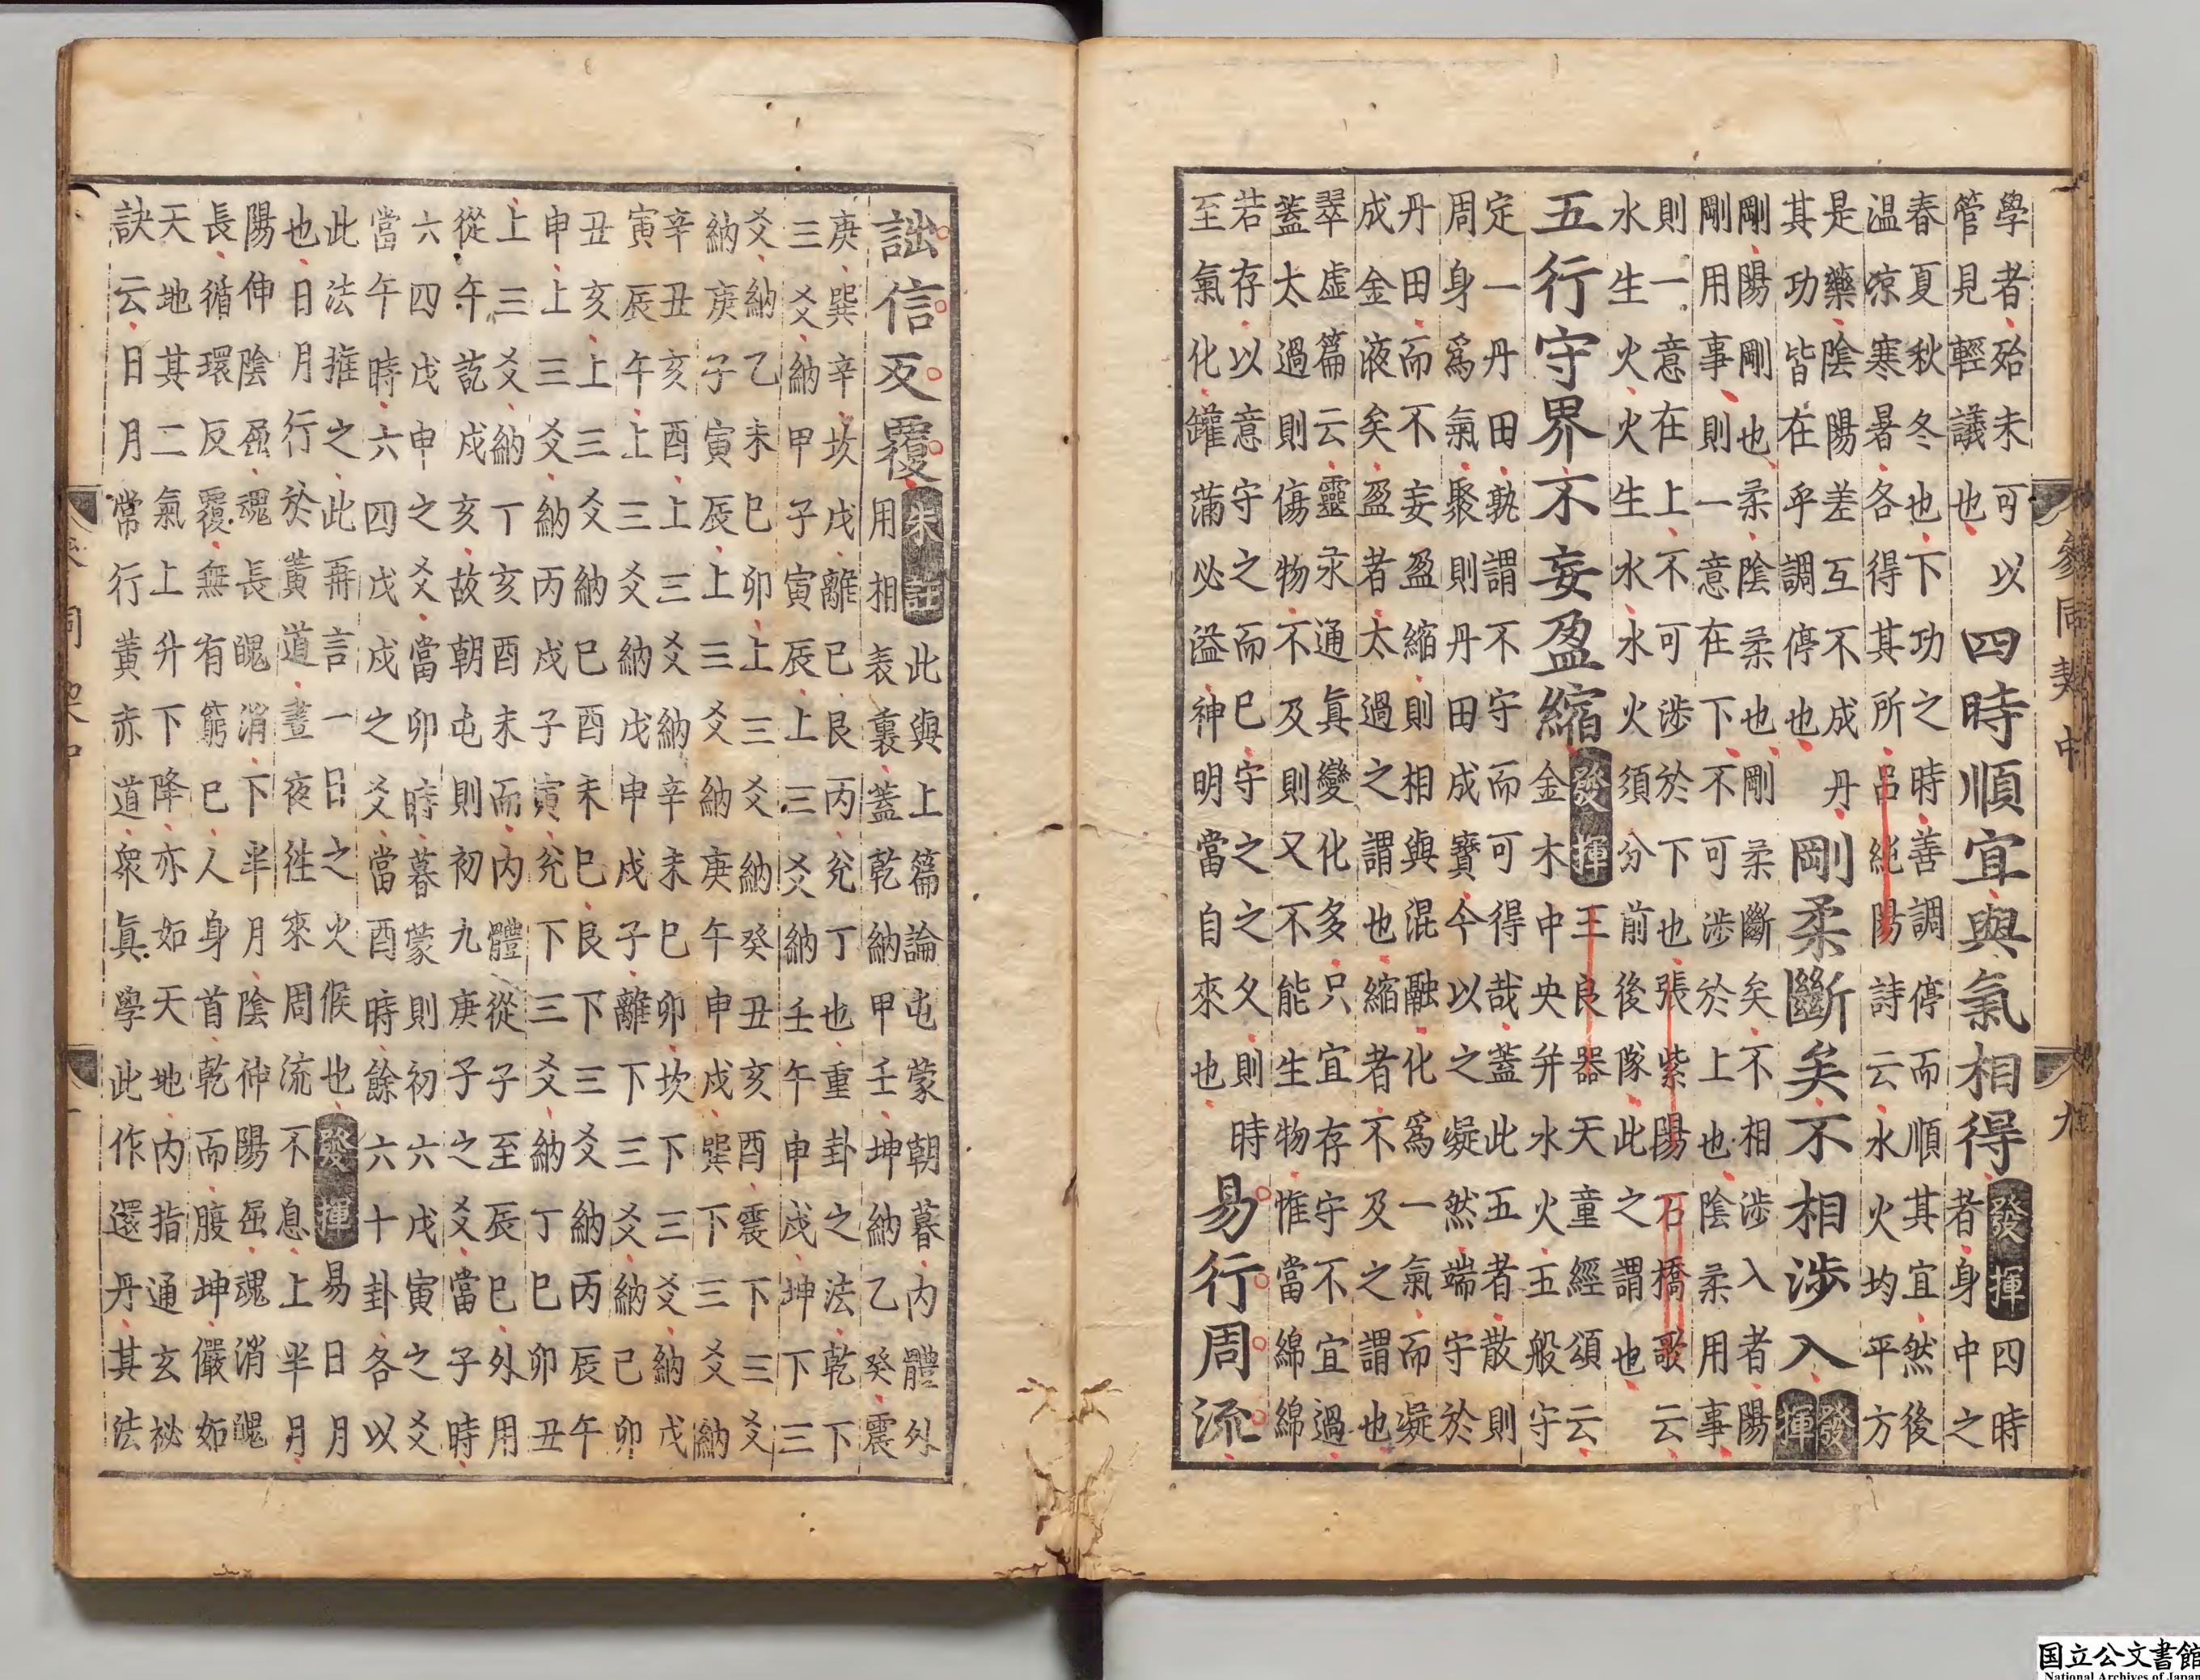 參同契中 九
學者殆未可以
管見輕議也
四時順宜與氣相得
發揮
四時
者身中之
春夏秋冬也下功之時善調停而順其宜然後
温凉寒暑各得其所呂純陽詩云水火均平方
是藥陰陽差互不成丹
其功皆在乎調停也
剛柔斷矣不相涉入
發揮
剛陽剛也柔陰柔也剛柔斷矣不相涉入者陽
剛用事則一意在下不可涉於上也陰柔用事
則一意在上不可涉於下也張紫陽石橋歌云
水生火火生水水火須分前後隊此之謂也
五行守界不妄盈縮
發揮
王良器天童經頌云
金木中央并水火五般守
定一丹田孰謂不守而可得哉蓋此五者散則
周身爲氣聚則丹田成寶今以之凝然端守於
丹田而不妄盈縮則相與混融化爲一氣而凝
成金液矣盈者太過之謂也縮者不及之謂也
翠虛篇云靈汞通眞變化多只宜存守不宜過
蓋太過則傷物不及則又不能生物惟當綿綿
若存以意守之而已守之之久則時
至氣化罐滿必溢神明當自來也
易行周流
詘信反覆
朱註
此與上篇論屯蒙朝暮内體外
用相表裏蓋乾納甲壬坤納乙癸震
庚巽辛坎戊離已艮丙兌丁也重卦之法乾下
三爻納甲子寅辰上三爻納壬午申戌坤下三
爻納乙未巳卯上三爻納癸丑亥酉震下三爻
納庚子寅辰上三爻納庚午申戌巽下三爻納
辛丑亥酉上三爻納辛未巳卯坎下三爻納戊
寅辰午上三爻納戊申戌子離下三爻納己卯
丑亥上三爻納巳酉未巳艮下三爻納丙辰午
申上三爻納丙戌子寅兌下三爻納丁巳卯丑
上三爻納丁亥酉未而内體從子至辰巳外用
從午訖戌亥故朝屯則初九庚子之爻當子時
六四戊申之爻當卯時暮蒙則初六戊寅之爻
當午時六四戊戌之爻當酉時餘六十卦各以
此法推之此再言一日之火候也
發揮
易日月
也日月行於黄道晝夜徃來周流不息上半月
陽伸陰屈魂長魄消下半月陰伸陽屈魂消魄
長循環反覆無有窮已人身首乾而腹坤儼如
天地其二氣上升下降亦如天地内指通玄秘
訣云日月常行黄赤道衆眞學此作還丹其法
国立公文書館
National Archives of Japan